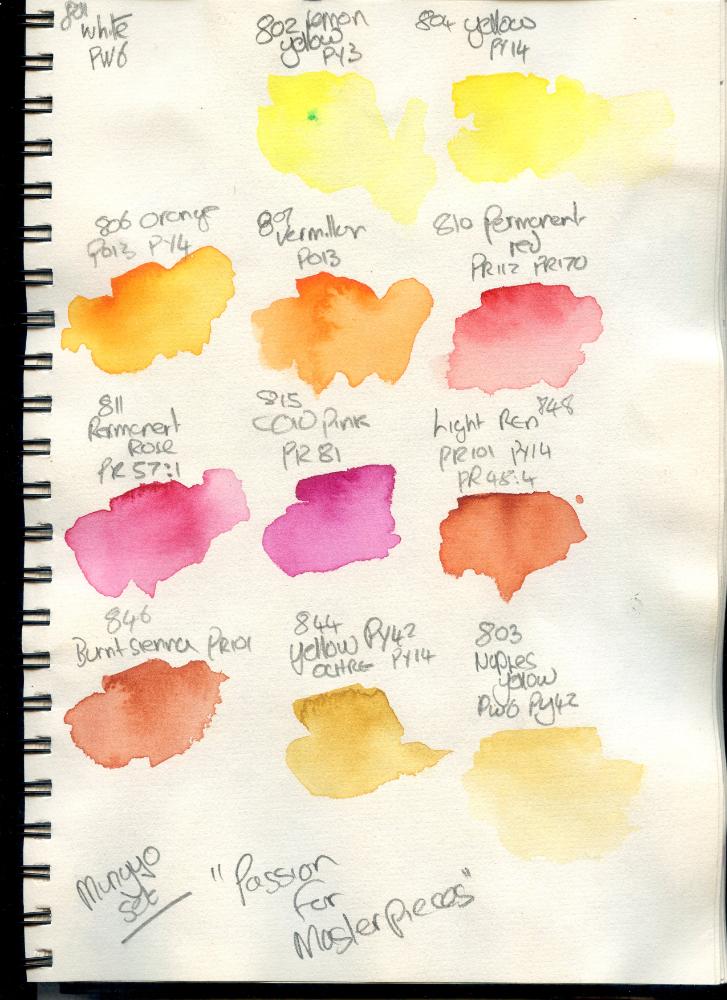 801
white
PW6
802 lemon
yellow
PY3
804 yellow
PY14
806 Orange
PO13 PY14
807
Vermilion
PO13
810 Permanent
red
PR112 PR170
811
Permanent
Rose
PR 57:1
815
Cold Pink
PR 81
Light Red 848
PR101 PY14
PR48:4
846
Burnt sienna PR101
844
Yellow PY42
OCHRE PY14
803
Naples
yellow
PW6 PY42
Mungyo
Set
"Passion
For
Masterpieces"